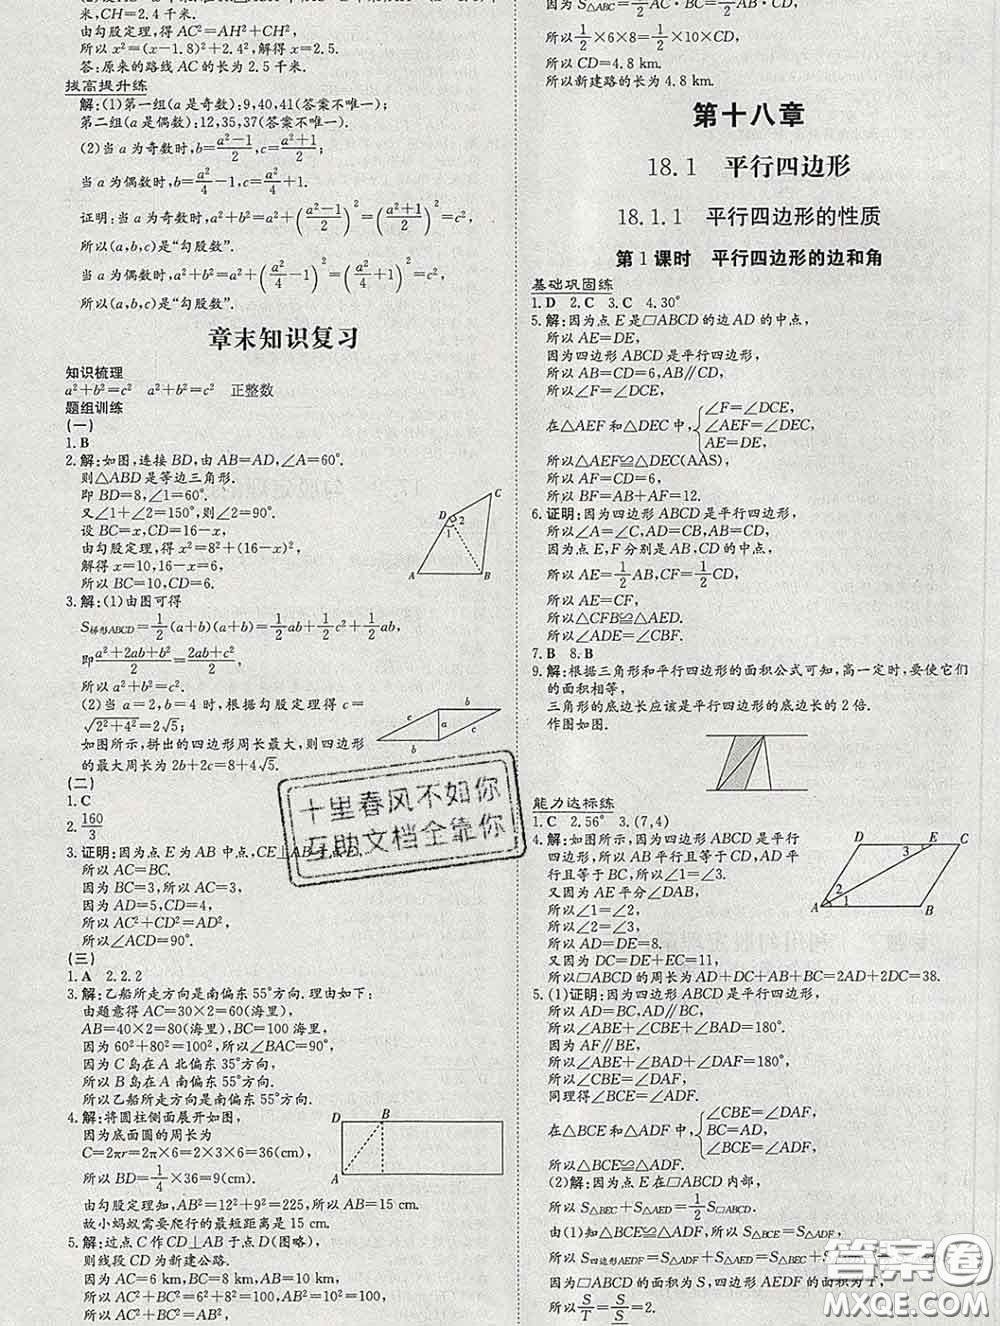 米,CH=2.4 千米.
由勾股定理,得 AC²=AH²+CH²,
所以 x²=(x-1.8)²+2.4²,解得 x=2.5.
答:原来的路线 AC 的长为 2.5 千米.
拔高提升练
解:(1)第一组(a 是奇数):9,40,41(答案不唯一);
第二组(a 是偶数):12,35,37(答案不唯一).
(2)当 a 为奇数时,b=(a²-1)/2,c=(a²+1)/2;
当 a 为偶数时,b=a²/4-1,c=a²/4+1.
证明:当 a 为奇数时,a²+b²=a²+((a²-1)/2)²=((a²+1)/2)²=c²,
所以(a,b,c)是“勾股数”.
当 a 为偶数时,a²+b²=a²+(a²/4-1)²=(a²/4+1)²=c²,
所以(a,b,c)是“勾股数”.
章末知识复习
知识梳理
a²+b²=c² a²+b²=c² 正整数
题组训练
(一)
1.B
2.解:如图,连接 BD,由 AB=AD,∠A=60°.
则△ABD 是等边三角形.
即 BD=8,∠1=60°.
又∠1+∠2=150°,则∠2=90°.
设 BC=x,CD=16-x,
由勾股定理,得 x²=8²+(16-x)²,
解得 x=10,16-x=6,
所以 BC=10,CD=6.
A B C D 1 2
3.解:(1)由图可得
S梯形ABCD=1/2(a+b)(a+b)=1/2ab+1/2c²+1/2ab,
即(a²+2ab+b²)/2=(2ab+c²)/2,
所以 a²+b²=c².
(2)当 a=2,b=4 时,根据勾股定理得 c=
√(2²+4²)=2√5;
如图所示,拼出的四边形周长最大,则四边形
的最大周长为 2b+2c=8+4√5.
c b a b c
(二)
1.C
2.160/3
3.证明:因为点 E 为 AB 中点,CE⊥AB
所以 AC=BC.
因为 BC=3,所以 AC=3.
因为 AD=5,CD=4,
所以 AC²+CD²=AD²,
所以∠ACD=90°.
(三)
1.A 2.2.2
3.解:乙船所走方向是南偏东 55°方向.理由如下:
由题意得 AC=30×2=60(海里),
AB=40×2=80(海里),BC=100(海里),
因为 60²+80²=100²,所以∠BAC=90°.
因为 C 岛在 A 北偏东 35°方向,
所以 B 岛在 A 南偏东 55°方向.
所以乙船所走方向是南偏东 55°方向.
4.解:将圆柱侧面展开如图,
因为底面圆的周长为
C=2πr=2π×6=2×3×6=36(cm),
所以 BD=1/4×36=9(cm),
由勾股定理知,AB²=12²+9²=225,所以 AB=15 cm.
故小蚂蚁需要爬行的最短距离是 15 cm.
D B A
5.解:过点 C 作 CD⊥AB 于点 D(图略),
则线段 CD 为新建公路.
因为 AC=6 km,BC=8 km,AB=10 km,
所以 AC²+BC²=AB²,
因为 S△ABC=1/2AC·BC=1/2AB·CD,
所以1/2×6×8=1/2×10×CD,
所以 CD=4.8 km.
所以新建路的长为 4.8 km.
第十八章
18.1 平行四边形
18.1.1 平行四边形的性质
第 1 课时 平行四边形的边和角
基础巩固练
1.D 2.C 3.C 4.30°
5.解:因为点 E 是□ABCD 的边 AD 的中点,
所以 AE=DE,
因为四边形 ABCD 是平行四边形,
所以 AB=CD=6,AB∥CD,
所以∠F=∠DCE,
在△AEF 和△DEC 中,{∠F=∠DCE,
∠AEF=∠DEC,
AE=DE,
所以△AEF≌△DEC(AAS),
所以 AF=CD=6,
所以 BF=AB+AF=12.
6.证明:因为四边形 ABCD 是平行四边形,
所以∠A=∠C,AB=CD,AD=CB,
因为点 E,F 分别是 AB,CD 的中点,
所以 AE=1/2AB,CF=1/2CD,
所以 AE=CF,
所以△CFB≌△AED,
所以∠ADE=∠CBF.
7.B 8.B
9.解:根据三角形和平行四边形的面积公式可知,高一定时,要使它们
的面积相等,
三角形的底边长应该是平行四边形的底边长的 2 倍.
作图如图.
能力达标练
1.C 2.56° 3.(7,4)
4.解:如图所示,因为四边形 ABCD 是平行
四边形,所以 AB 平行且等于 CD,AD 平
行且等于 BC,所以∠1=∠3.
又因为 AE 平分∠DAB,
所以∠1=∠2,
所以∠2=∠3,
所以 AD=DE=8.
因为 DC=DE+EC=11,
所以□ABCD 的周长为 AD+DC+AB+BC=2DC+2AD=38.
D E C 3 2 1 A B
5.(1)证明:因为四边形 ABCD 是平行四边形,
所以 AD=BC,AD∥BC,
所以∠ABE+∠CBE+∠BAD=180°.
因为 AF∥BE,
所以∠ABE+∠BAD+∠DAF=180°,
所以∠CBE=∠DAF,
同理得∠BCE=∠ADF.
在△BCE 和△ADF 中,{∠CBE=∠DAF,
BC=AD,
∠BCE=∠ADF,
所以△BCE≌△ADF.
(2)解:因为点 E 在□ABCD 内部,
所以 S△BEC+S△AED=1/2S□ABCD,
由(1)知△BCE≌△ADF,所以 S△BCE=S△ADF,
所以 S四边形AEDF=S△ADF+S△AED=S△BEC+S△AED=
因为□ABCD 的面积为 S,四边形 AEDF 的面积为 T,
所以S/T=S/(S/2)=2.
十里春风不如你
互助文档全靠你
答案圈
MXQE.COM